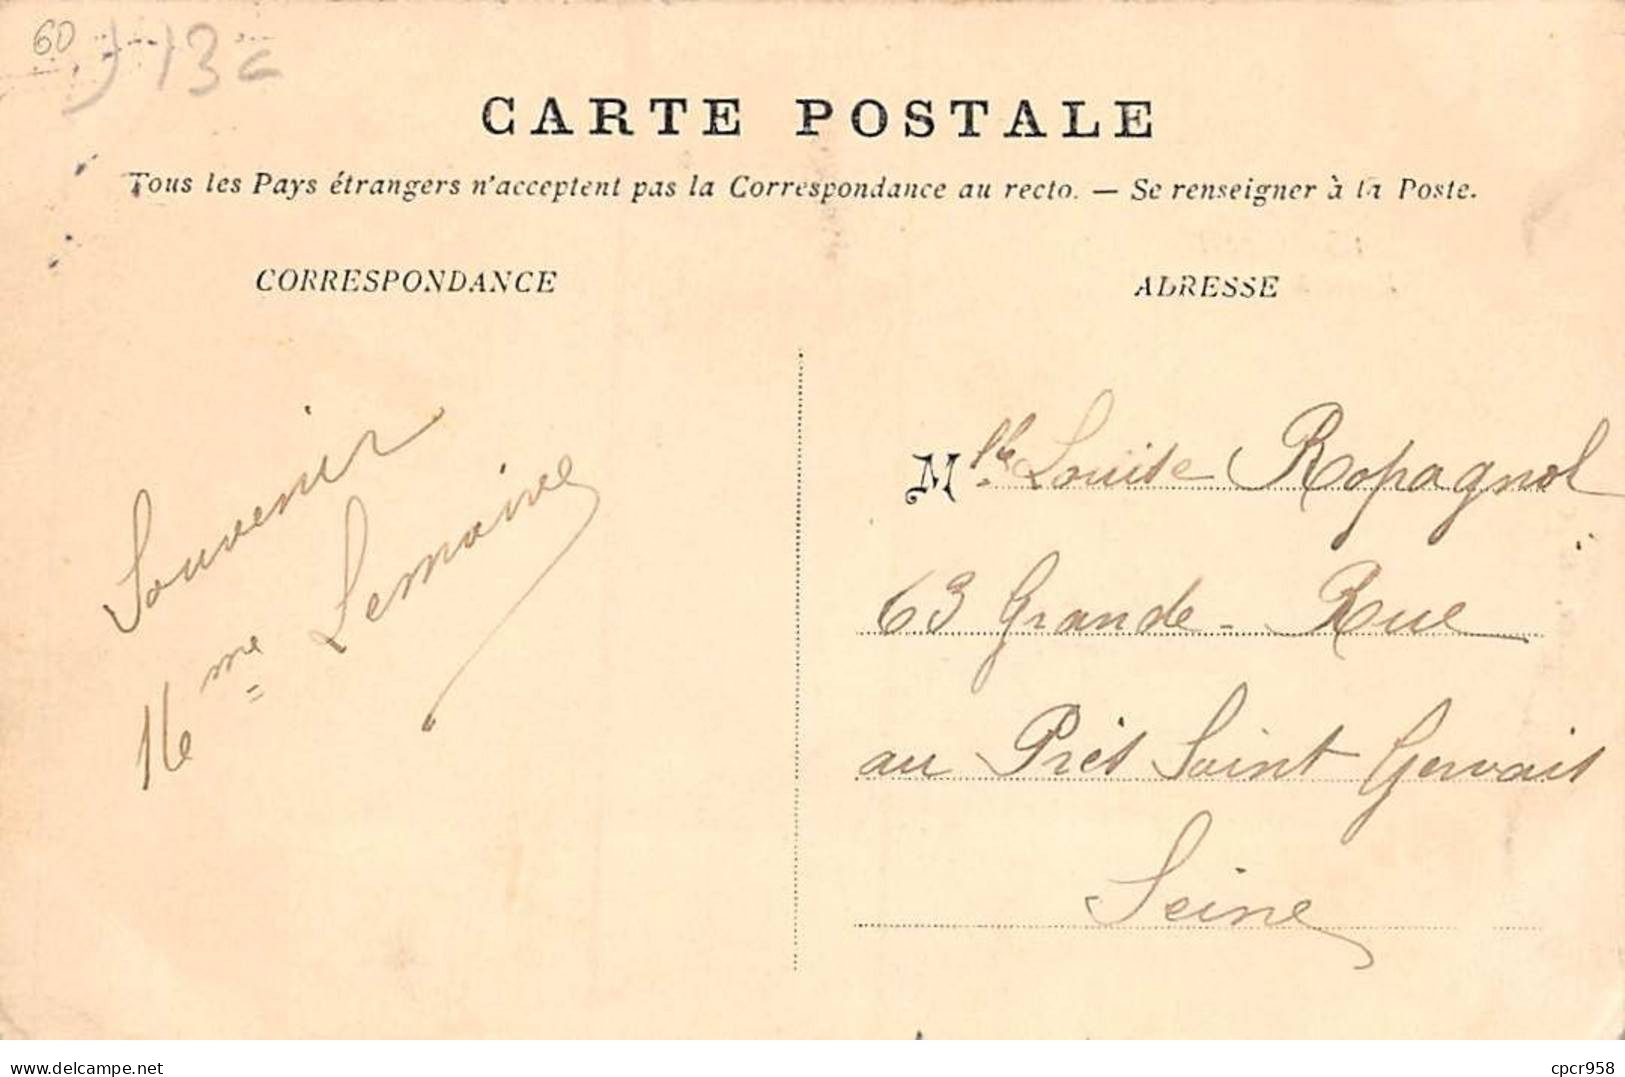 60
CARTE POSTALE
Tous les Pays étrangers n'acceptent pas la Correspondance au recto. — Se renseigner à la Poste.
CORRESPONDANCE
ADRESSE
Souvenir
16me Lemaire
Mlle Louise Ropagnol
63 Grande-Rue
au Prés Saint Gervais
Seine
delcampe.net
cpcr958